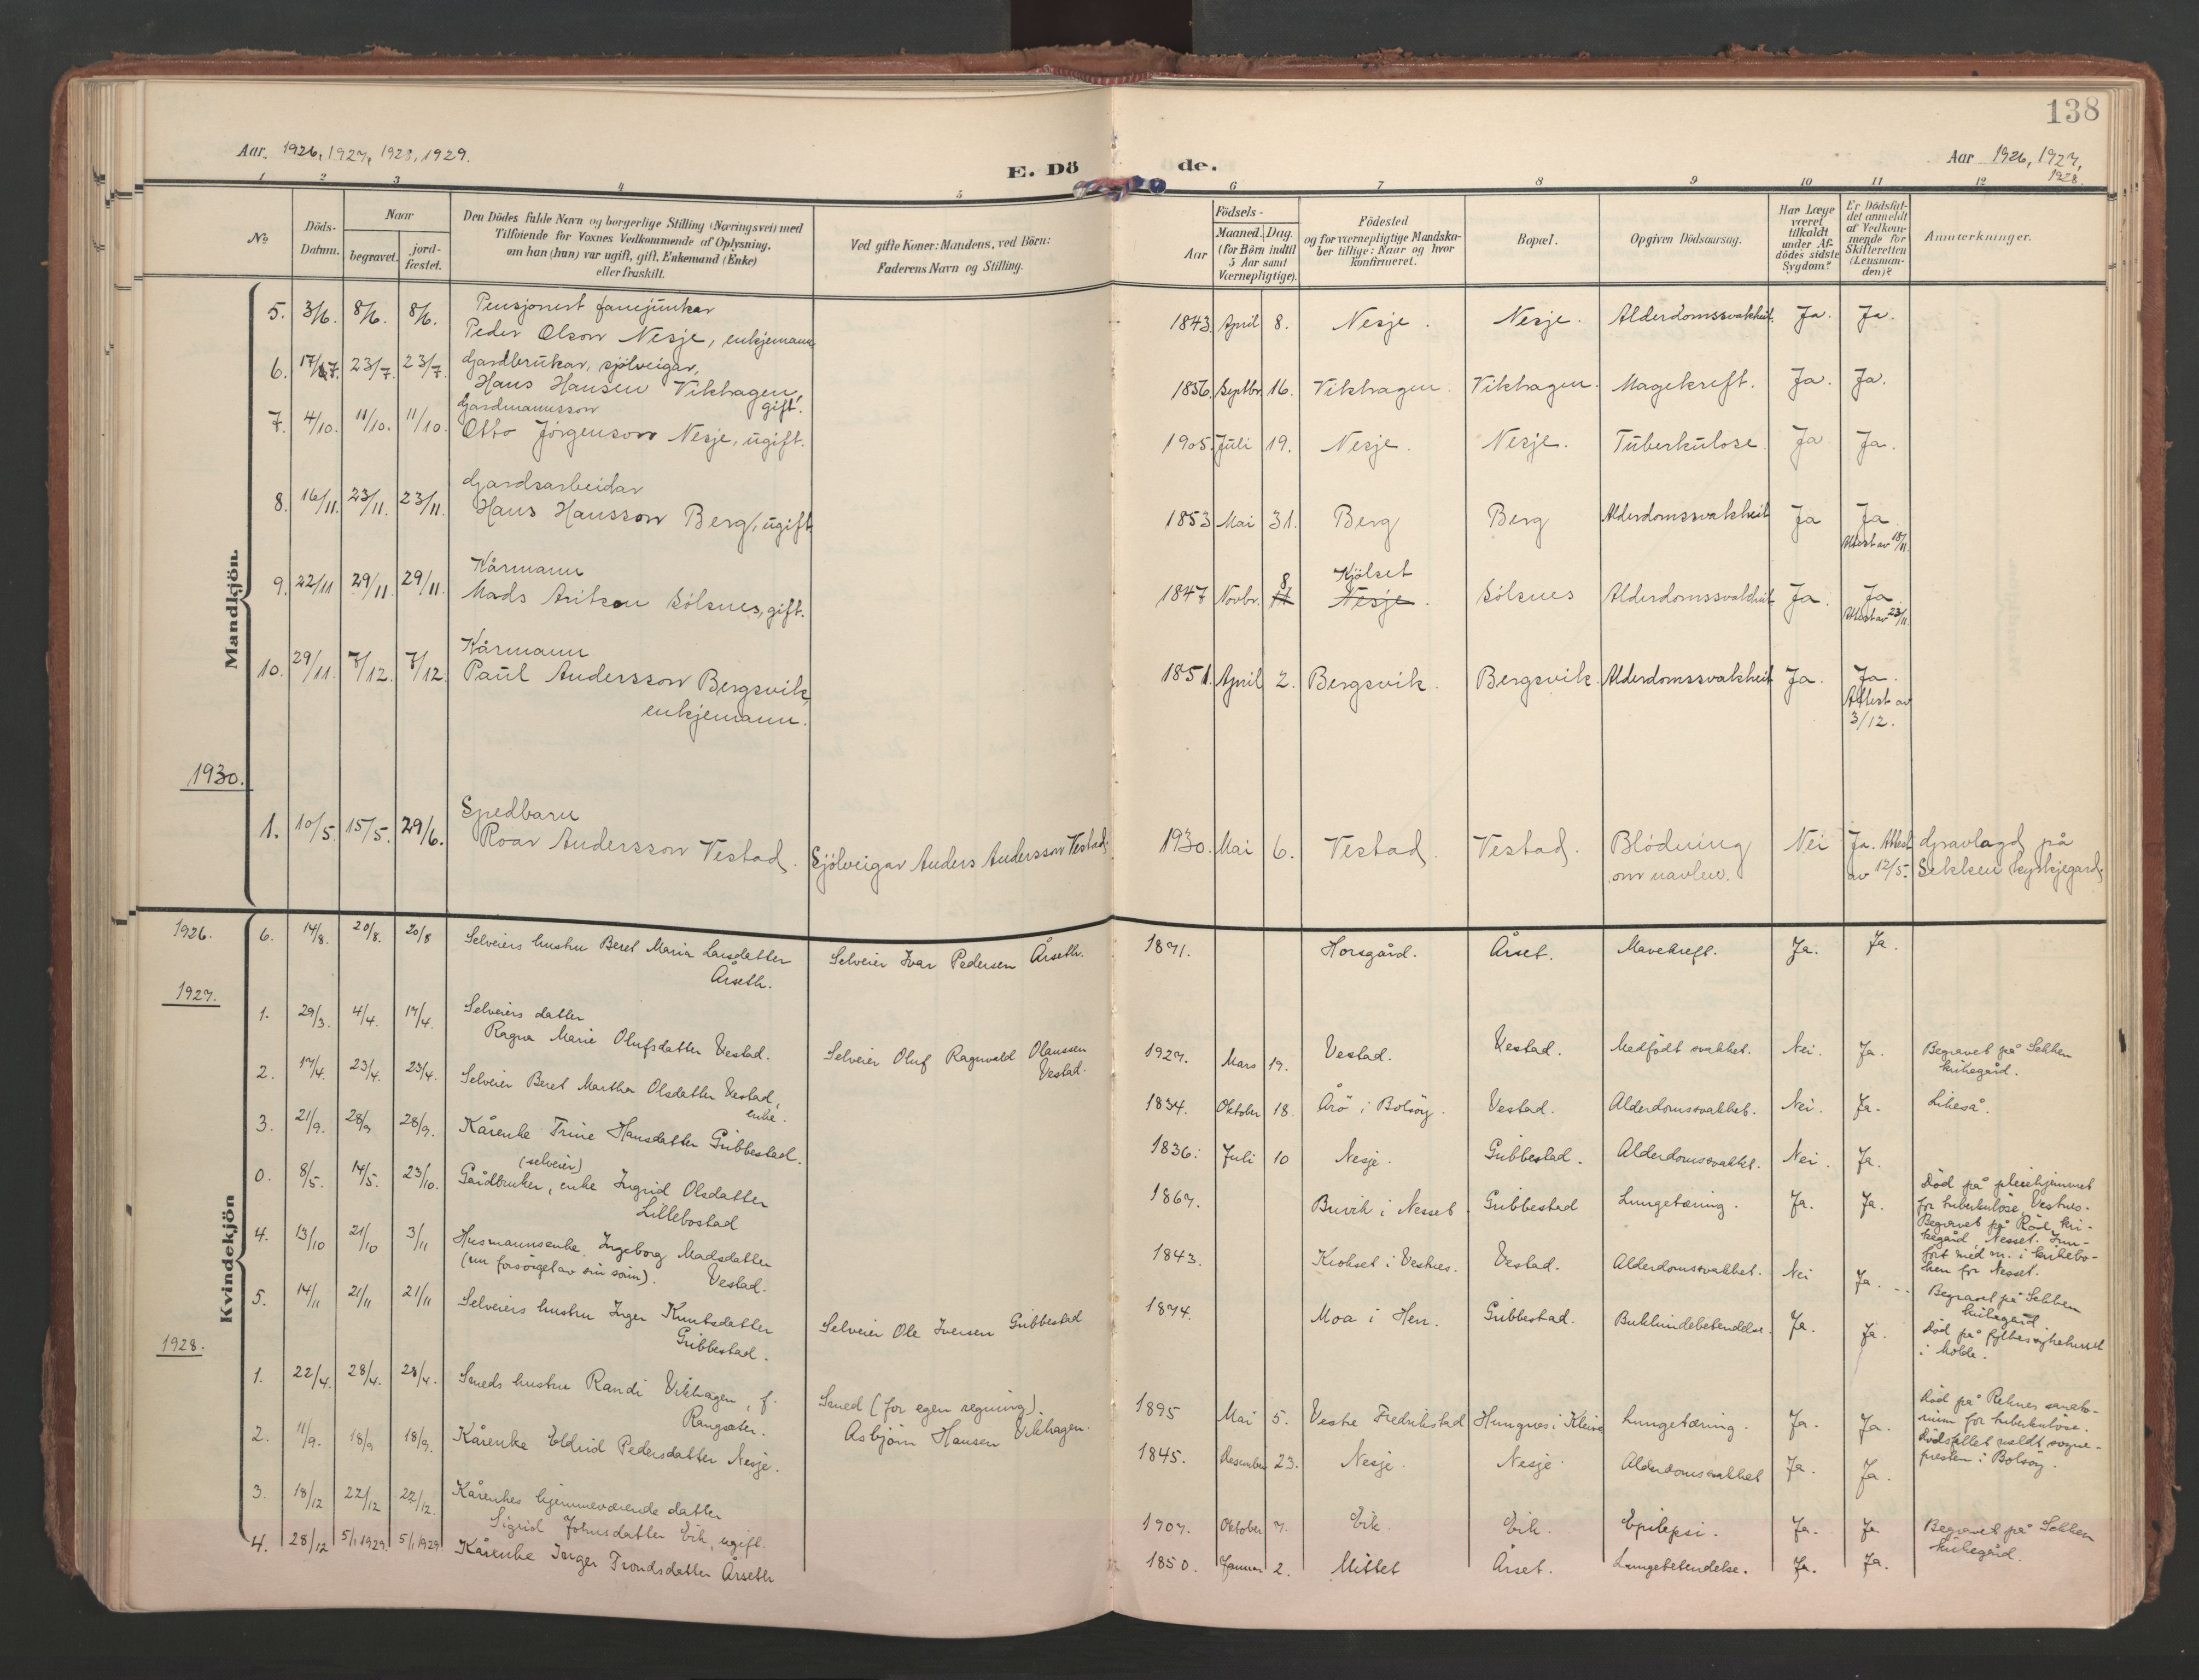 138
Aar. 1926, 1927, 1928, 1929.
E. Döde.
Aar 1926, 1927,
1928.
1 2 3 4 5 6 7 8 9 10 11 12
No
Döds-Datum.
Naar
begravet.
jordfæstet.
Den Dödes fulde Navn og borgerlige Stilling (Næringsvei) med
Tilföiende for Voxnes Vedkommende af Oplysning,
om han (hun) var ugift, gift, Enkemand (Enke)
eller fraskilt.
Ved gifte Koner: Mandens, ved Börn:
Faderens Navn og Stilling.
Födsels-
Aar
Maaned. Dag.
(for Börn indtil
5 Aar samt
Værnepligtige).
Födested
og for værnepligtige Mandska-
ber tillige: Naar og hvor
konfirmeret.
Bopæl.
Opgiven Dödsaarsag.
Har Læge
været
tilkaldt
under Af-
dödes sidste
Sygdom?
Er Dödsfal-
det anmeldt
af Vedkom-
mende for
Skifteretten
(Lensman-
den)?
Anmærkninger.
Mandkjön.
5. 3/6. 8/6. 8/6. Pensjonert fanejunkar
Peder Olson Nesje, enkjemann 1843. April 8. Nesje. Nesje. Alderdomssvakheit. Ja. Ja.
6. 17/7. 23/7. 23/7. Gardbrukar, sjölveigar,
Hans Hansen Vikhagen, gift. 1856. Septbr. 16. Vikhagen. Vikhagen. Magekreft. Ja. Ja.
7. 4/10. 11/10. 11/10. Gardmannsson
Otto Jörgenson Nesje, ugift. 1905. Juli 19. Nesje. Nesje. Tuberkulose. Ja. Ja.
8. 16/11. 23/11. 23/11. Gardsarbeidar
Hans Hansson Berg, ugift 1853 Mai 31. Berg Berg Alderdomssvakheit Ja Ja
Attest av 18/11.
9. 22/11 29/11. 29/11. Kårmann
Mads Sölsnes, gift. 1847 Novbr. 11 8 Nesje. Kjölset Sölsnes Alderdomssvakheit Ja. Ja
Attest av 23/11.
10. 29/11. 7/12. 7/12. Kårmann
Paul Andersson Bergsvik,
enkjemann. 1851. April 2. Bergsvik. Bergsvik. Alderdomssvakheit Ja. Ja.
Attest av
3/12.
1930.
1. 10/5. 15/5. 29/6. Spedbarn
Roar Andersson Vestad. Sjölveigar Anders Andersson Vestad. 1930. Mai 6. Vestad. Vestad. Blödning
om navlen. Nei Ja. Attest
av 12/5. Gravlagd på
Sekken kyrkjegard.
Kvindekjön
1926.
6. 14/8. 20/8. 20/8 Selveiers hustru Beret Maria Larsdatter
Årseth. Selveier Ivar Pedersen Årseth. 1871. Horsgård. Årset. Mavekreft. Ja. Ja.
1927.
1. 29/3. 4/4. 17/4. Selveiers datter
Ragna Marie Olufsdatter Vestad. Selveier Oluf Ragnvald Olaussen
Vestad. 1927. Mars 19. Vestad. Vestad. Medfödt svakhet. Nei. Ja. Begravet på Sekken
kirkegård.
2. 17/4. 23/4. 23/4. Selveier Beret Martha Olsdatter Vestad,
enke. 1834. Oktober 18. Årö i Bolsöy. Vestad. Alderdomssvakhet. Nei. Ja. Likeså.
3. 21/9. 28/9 28/9. Kårenke Trine Hansdatter Gribbestad. 1836. Juli 10 Nesje. Gribbestad. Alderdomssvakhet. Nei. Ja.
0. 8/5. 14/5. 23/10. (selveier)
Gårdbruker, enke Ingrid Olsdatter
Lillebostad 1867. Buvik i Nesset. Gribbestad Lungetæring. Ja. Ja. Död på pleiehjemmet
for tuberkulöse, Vestnes.
Begravet på Röd kir-
kegård, Nesset. Inn-
fört med nr. i kirkebo-
ken for Nesset.
4. 13/10 21/10 3/11 Husmannsenke Ingeborg Madsdatter
(un forsörget av sin sönn). Vestad. 1843. Krokset i Vestnes. Vestad. Alderdomssvakhet. Nei Ja. Begravet på Sekken
kirkegård.
5. 14/11 21/11 21/11 Selveiers hustru Inger Knutsdatter
Gribbestad. Selveier Ole Iversen Gribbestad 1874. Moa i Hen. Gribbestad. Bukhindebetendelse. Ja. Ja. Död på fylkessykehuset
i Molde.
1928.
1. 22/4. 28/4. 28/4. Smeds hustru Randi Vikhagen, f.
Rangsæter. Smed (for egen regning).
Asbjörn Hansen Vikhagen. 1895 Mai 5. Vestre Fredrikstad Hungnes i Kleive Lungetæring. Ja. Ja. Död på Reknes sanato-
rium for tuberkulöse.
Dödsfallet meldt sogne-
presten i Bolsöy.
2. 11/9. 18/9 18/9. Kårenke Eldrid Pedersdatter Nesje. 1845. Desember 23. Nesje. Nesje. Alderdomssvakhet Ja. Ja.
3. 18/12 22/12 22/12. Kårenkes hjemmeværende datter
Sigrid Johnsdatter Eik, ugift. 1907. Oktober 7. Eik. Eik. Epilepsi. Ja. Ja Begravet på Sekken
kirkegård.
4. 28/12 5/1 1929. 5/1 1929 Kårenke Inger Trondsdatter Årseth 1850. Januar 2. Mittet Årset. Lungebetendelse. Ja. Ja.